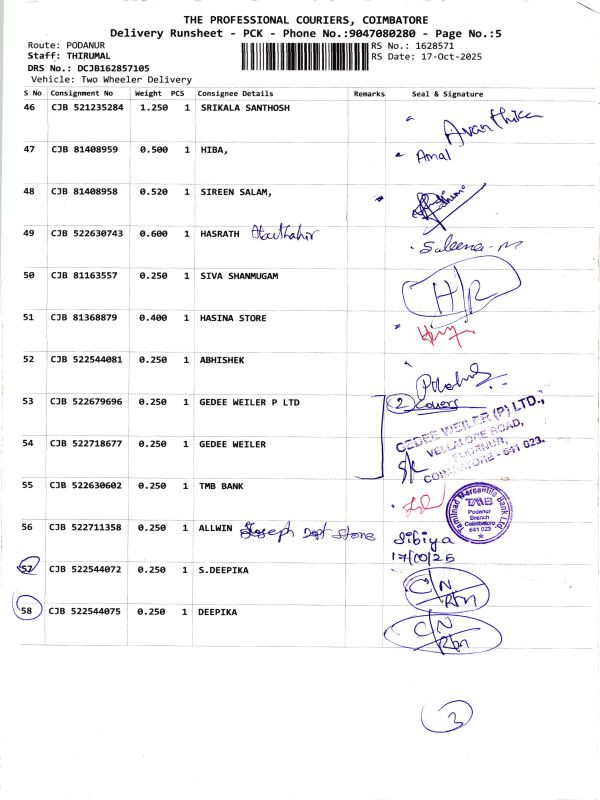 THE PROFESSIONAL COURIERS, COIMBATORE
Delivery Runsheet - PCK - Phone No.:9047080280 - Page No.:5
Route: PODANUR RS No.: 1628571
Staff: THIRUMAL RS Date: 17-Oct-2025
DRS No.: DCJB162857105
Vehicle: Two Wheeler Delivery
S No Consignment No Weight PCS Consignee Details Remarks Seal & Signature
46 CJB 521235284 1.250 1 SRIKALA SANTHOSH Avanthika
47 CJB 81408959 0.500 1 HIBA, Amal
48 CJB 81408958 0.520 1 SIREEN SALAM,
49 CJB 522630743 0.600 1 HASRATH Saleena. M
50 CJB 81163557 0.250 1 SIVA SHANMUGAM H/R
51 CJB 81368879 0.400 1 HASINA STORE
52 CJB 522544081 0.250 1 ABHISHEK
53 CJB 522679696 0.250 1 GEDEE WEILER P LTD 2 covers
GEDEE WEILER (P) LTD.,
VELLALORE ROAD,
PODANUR,
COIMBATORE - 641 023.
54 CJB 522718677 0.250 1 GEDEE WEILER
55 CJB 522630602 0.250 1 TMB BANK
Tamilnad Mercantile Bank Ltd.
TMB
Podanur
Branch
Coimbatore
641 023
56 CJB 522711358 0.250 1 ALLWIN Joseph Dept Store Sibiya
17/10/25
57 CJB 522544072 0.250 1 S.DEEPIKA C/N
Rtn
58 CJB 522544075 0.250 1 DEEPIKA C/N
Rtn
3